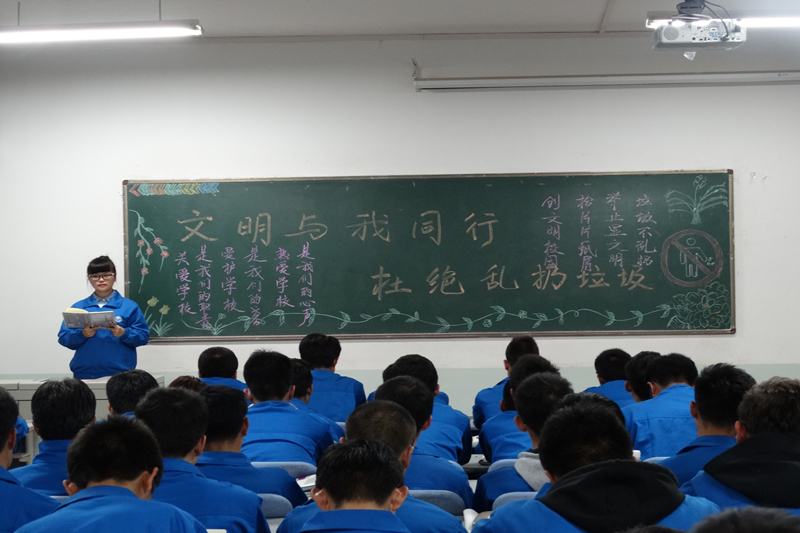 文明与我同行
杜绝乱扔垃圾
关爱学校
是我们的职责
爱护学校
是我们的义务
热爱学校
是我们的心声
垃圾不乱扔
举止显文明
拾片片纸屑
创文明校园